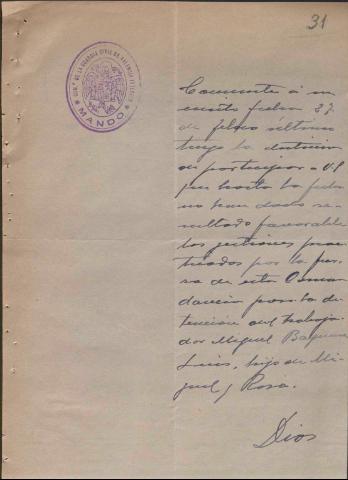 31
COM.ª DE LA GUARDIA CIVIL DE VALENCIA
MANDO
á su
escrito fecha 27
de último
tengo la distinción
de participar a V.S.
que hasta la fecha
no han dado re-
sultado favorable
las gestiones prac-
ticadas por la fuer-
za de esta Coman-
dancia para la de-
tención del trabaja-
dor Miguel
Luis, hijo de Mi-
guel y Rosa.
Dios